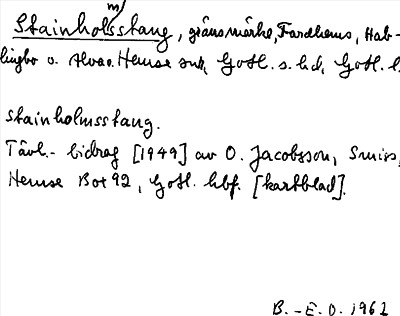 m/
Stainholsstang, gränsmärke, Fardhems, Hab-
lingbo o. Alva o. Hemse snr, Gotl. s. hd, Gotl. l.
stainholmsstang.
Tävl.- bidrag [1949] av O. Jacobsson, Smiss,
Hemse Box 92, Gotl. hbf. [kartblad].
B.-E.O. 1962